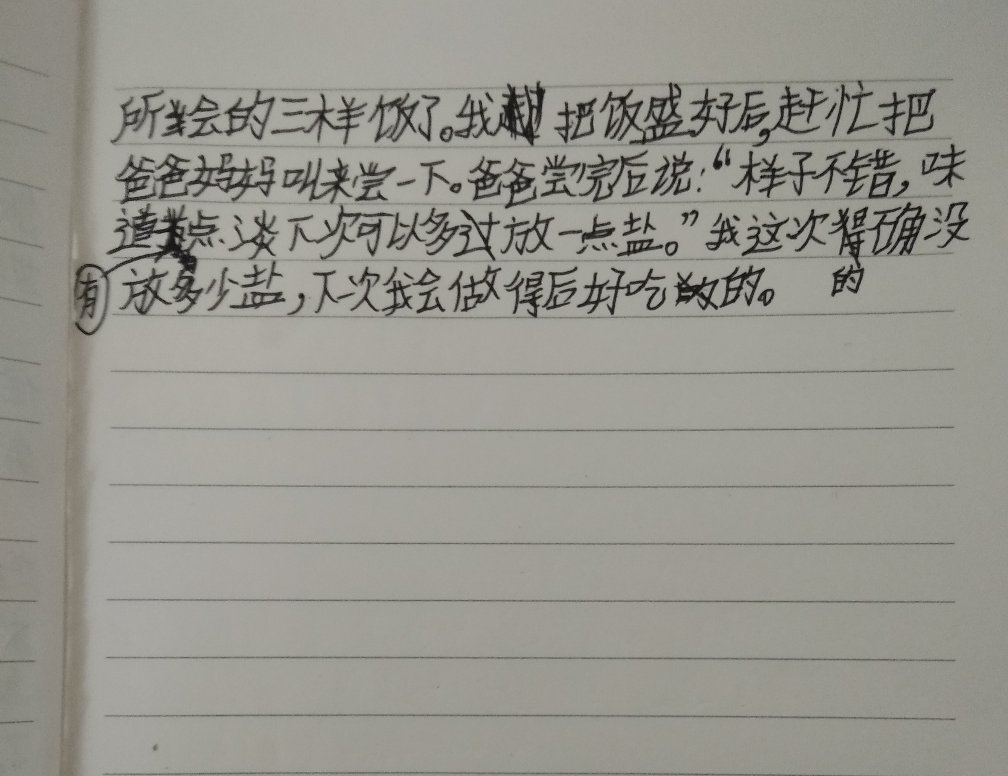 所学会的三样饭了。我把饭盛好后,赶忙把
爸爸妈妈叫来尝一下。爸爸尝完后说:“样子不错,味
道有点谈下次可以多过放一点盐。”我这次的确没
放多少盐,下次我会做得后好吃的。